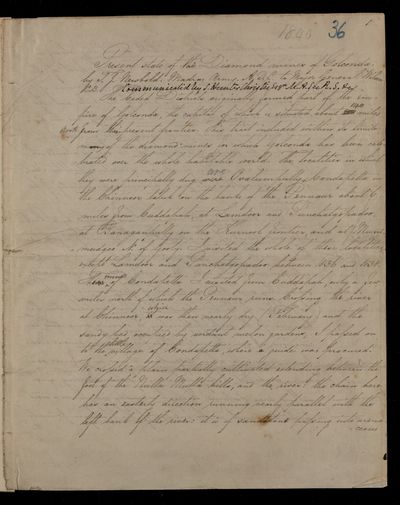 1840 36 1
Present state of the Diamond mines of Golconda,
by T. J. Newbold, Madras Army, A.D.C. to Major General Wilson
K.C.B. Communicated by S. Hunter Christie Esqr M.A. Sec. R.S. &c
The Ceded Districts originally formed part of the em-
pire of Golconda, the capital of which is situated about miles
from the present frontier. This tract included within its limits
many of the diamond mines in which Golconda has been cele-
brated over the whole habitable world. The localities in which
they were principally dug were Ovalumpully, Condapetta in
the Chinnoor taluk on the banks of the Pennaur about
miles from Cuddapah, at Lamdoor and Pinchetgapadoo,
at Banaganpully on the Kurnool frontier, and at
N. of Gooty. I visited the whole of these localities
except Lamdoor and Pinchetgapadoo between 1836 and
mines of Condapetta I visited from Cuddapah, only a few
miles north of which the Pennaur runs. Crossing the river
at Chinnoor, which was then nearly dry (February) and the
sandy bed occupied by verdant melon gardens, I passed on
to the little village of Condapetta where a guide was procured.
We crossed a plain partially cultivated extending between the
foot of the Nulla Mulla hills, and the river: the chain here
has an easterly direction running nearly parallel with the
left bank of the river: it is of sandstone passing into arena-
ceous